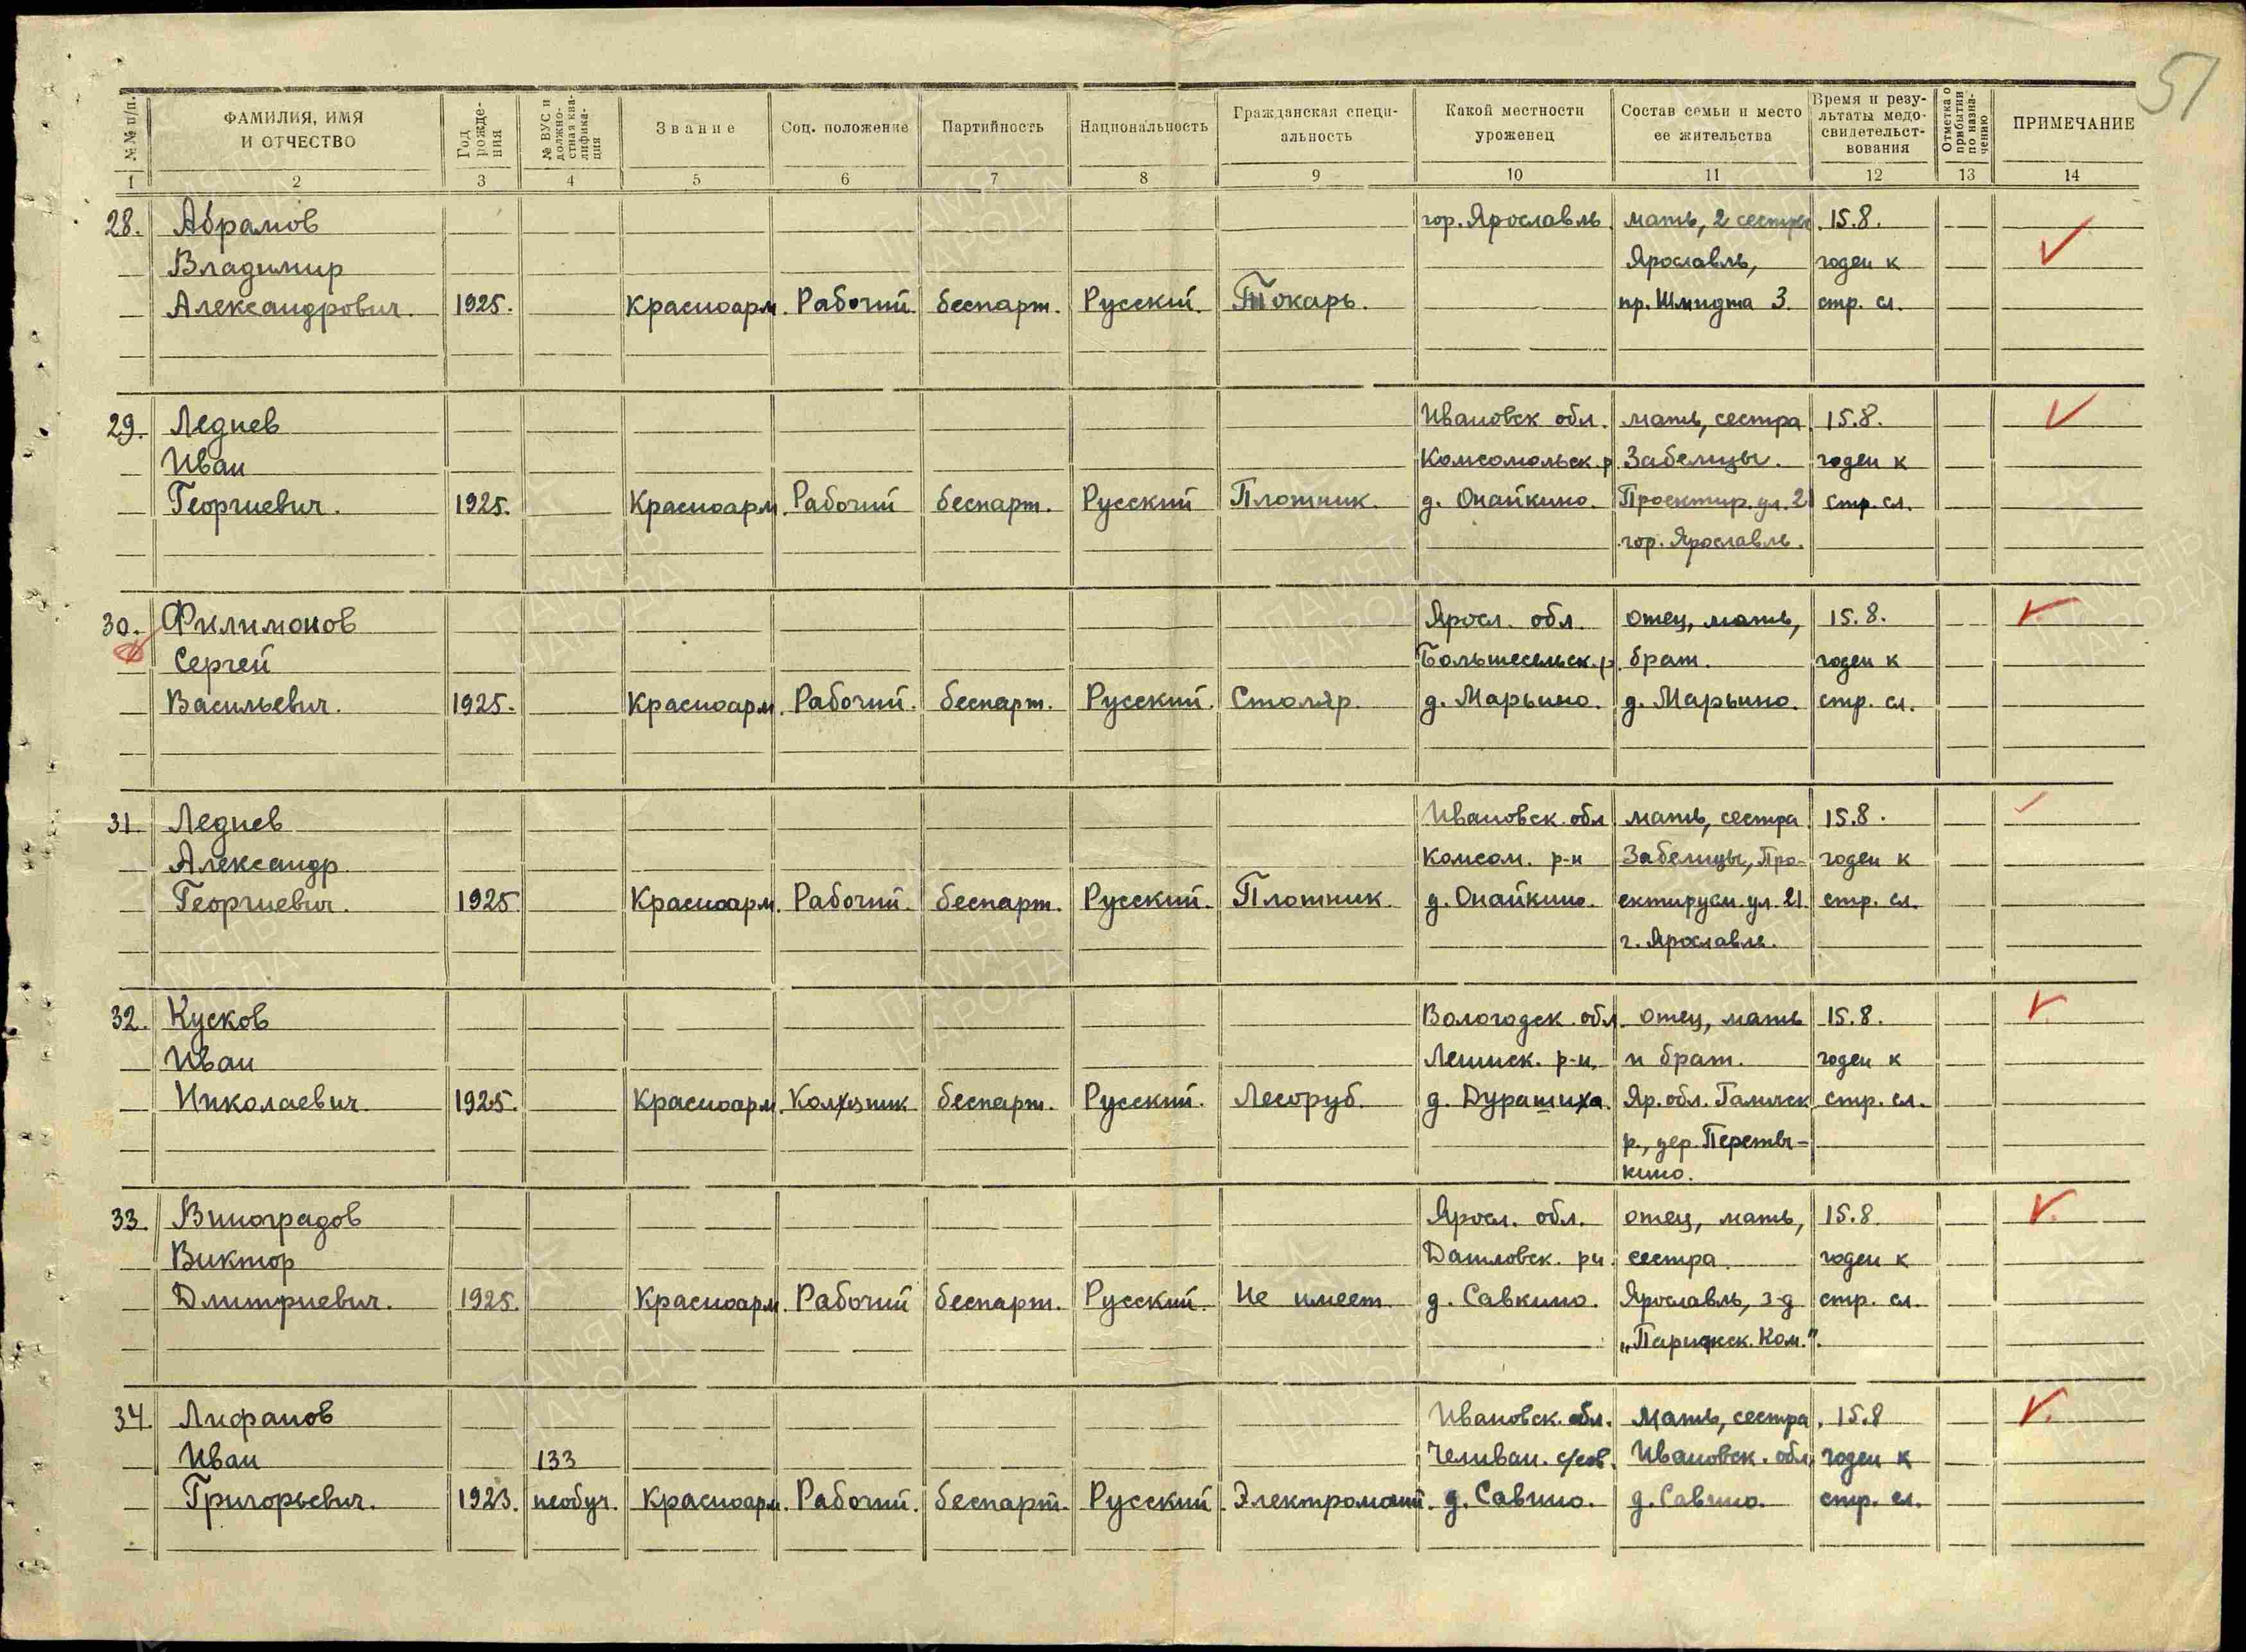 51
№№ п/п. ФАМИЛИЯ, ИМЯ И ОТЧЕСТВО Год рождения № ВУС и должностная квалификация Звание Соц. положение Партийность Национальность Гражданская специальность Какой местности уроженец Состав семьи и место ее жительства Время и результаты медосвидетельствования Отметка о прибытии по назначению ПРИМЕЧАНИЕ
1 2 3 4 5 6 7 8 9 10 11 12 13 14
28. Абрамов гор. Ярославль. мать, 2 сестры. 15.8.
Владимир Ярославль, годен к
Александрович. 1925. Красноарм. Рабочий. беспарт. Русский. Токарь. пр. Шмидта 3. стр. сл.
29. Леднев Ивановск обл. мать, сестра 15.8.
Иван Комсомольск. р Забелицы. годен к
Георгиевич. 1925. Красноарм. Рабочий беспарт. Русский Плотник. д. Онайкино. Проектир. ул. 21 стр. сл.
гор. Ярославль.
30. Филимонов Яросл. обл. отец, мать, 15.8.
Сергей Большесельск. р. брат. годен к
Васильевич. 1925. Красноарм. Рабочий. беспарт. Русский. Столяр. д. Марьино. д. Марьино. стр. сл.
31. Леднев Ивановск. обл мать, сестра 15.8.
Александр. Комсом. р-н Забелицы, Про- годен к
Георгиевич. 1925. Красноарм. Рабочий. беспарт. Русский. Плотник. д. Онайкино. ектируем. ул. 21. стр. сл.
г. Ярославле.
32. Кусков Вологодск. обл. отец, мать 15.8.
Иван Ленинск. р-н, и брат. годен к
Николаевич. 1925. Красноарм. Колхозник беспарт. Русский. Лесоруб. д. Дурашиха. Яр. обл. Галичск стр. сл.
р., дер. Переты-
кино.
33. Виноградов Яросл. обл. отец, мать, 15.8
Виктор Даниловск. рн. сестра. годен к
Дмитриевич. 1925. Красноарм. Рабочий беспарт. Русский. Не имеет. д. Савкино. Ярославль, з-д стр. сл.
„Парижск. Ком.".
34. Лифанов Ивановск. обл. мать, сестра. 15.8
Иван 133 Челиван. с/сов. Ивановск. обл. годен к
Григорьевич. 1923. необуч. Красноарм. Рабочий. беспарт. Русский. Электромонт. д. Савино. д. Савино. стр. сл.
ПАМЯТЬ НАРОДА